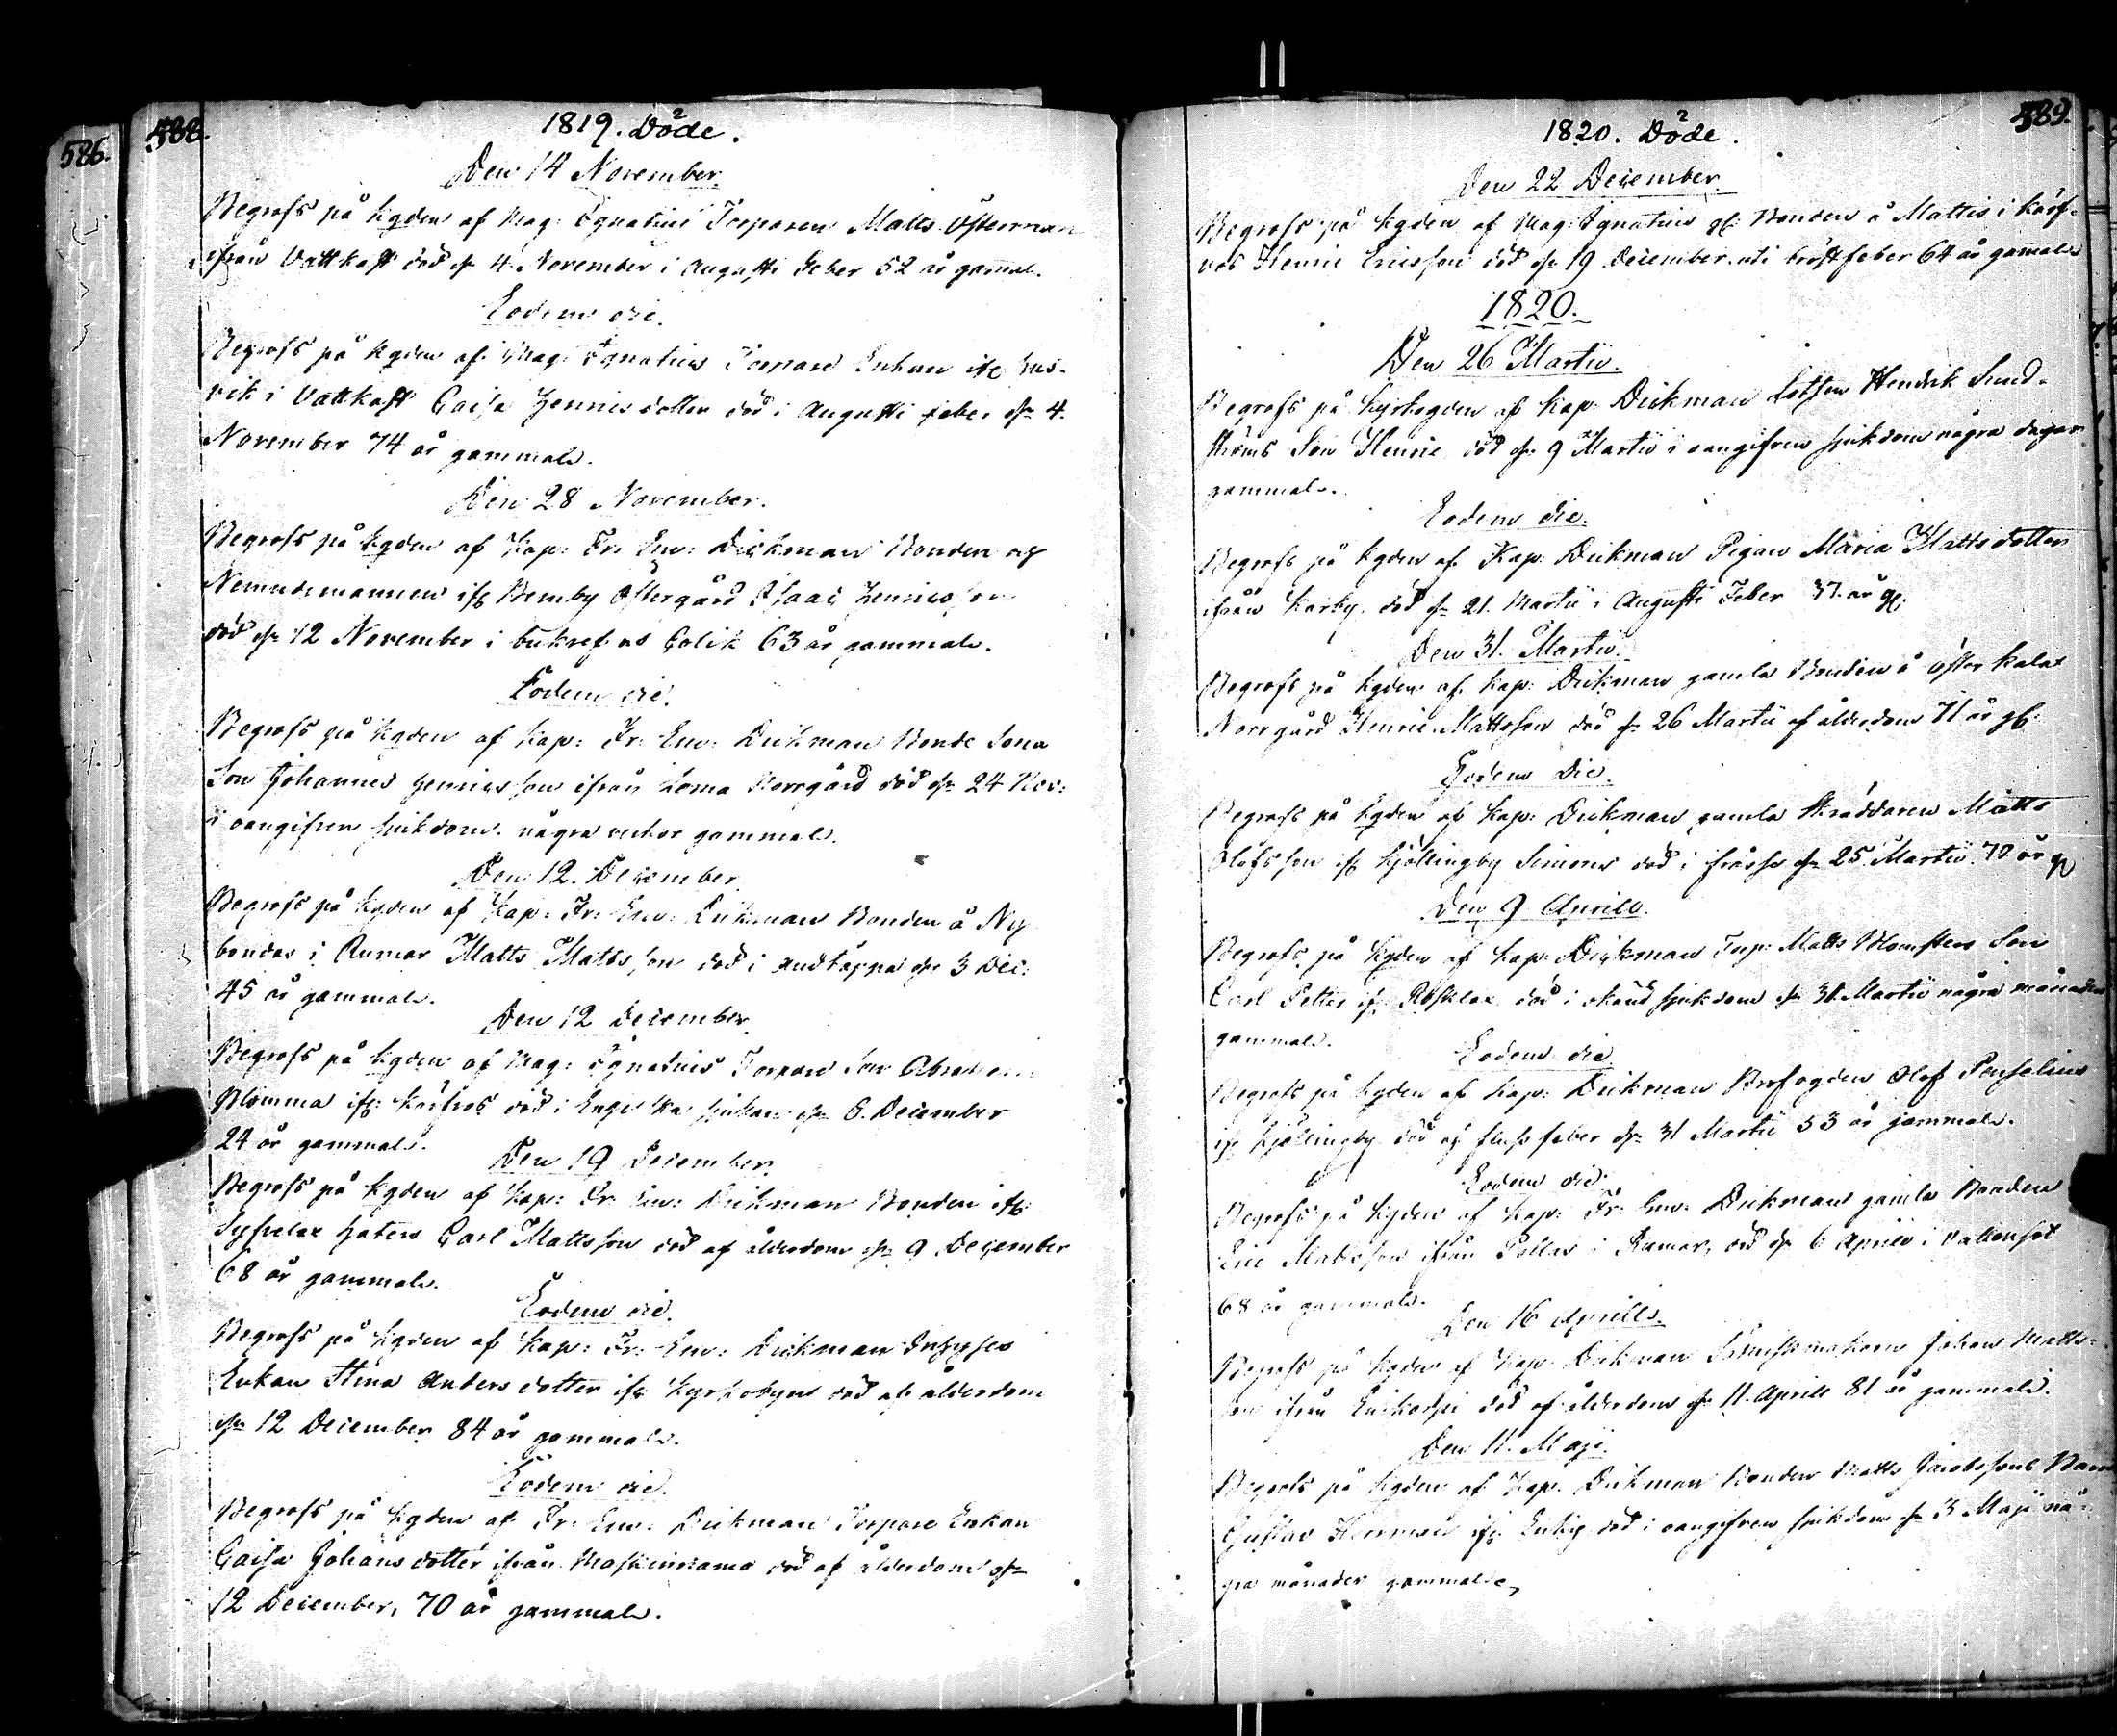 586.
588.
1819. Döde.
Den 14 November.
Begrofs på Kgden af Mag: Ignatius Torparen Matts Österman
ifrån Vattkast död dn 4 November i Augusti Feber 52 år gammal.
Eodem die.
Begrofs på Kgden af Mag: Ignatius Torpare Enkan ifr
vik i Vattkast Caisa Henricsdotter död i Augusti feber dn 4.
November 74 år gammal.
Den 28 November.
Begrofs på Kgden af Kap: Fr: Em: Dickman Bonden og
Nemndemannen ifr Bemby Östergård Isaac Henricsson
död dn 12 November i bukref os Colik 63 år gammal.
Eodem die.
Begrofs på Kgden af Kap: Fr: Em: Dickman Bonde Sona
Son Johannes Henricsson ifrån Loma Norrgård död dn 24 Nov:
i oangifven sjukdom några veckor gammal.
Den 12. December
Begrofs på Kgden af Kap: Fr: Em: Dickman Bonden å Ny
bondas i Rumar Matts Mattsson död i andtäppa dn 3 Dec:
45 år gammal.
Den 12 December
Begrofs på Kgden af Mag: Ignatius Torpare Son Abraham
Blomma ifr: Kårfvos död i Engelska sjukan dn 6. December
24 år gammal.
Den 19 December
Begrofs på Kgden af Kap: Fr: Em: Dickman Bonden ifr
Carl Mattsson död af ålderdom dn 9 December
68 år gammal.
Eodem die.
Begrofs på Kgden af Kap: Fr: Em: Dickman Inhyses
Enkan Stina Andersdotter ifr Kyrkobyn död af ålderdom
dn 12 December 84 år gammal.
Eodem die.
Begrofs på Kgden af Fr: Em: Dickman Torpare Enkan
Caisa Johansdotter ifrån Maskinnamo död af ålderdom dn
12 December, 70 år gammal.
589.
1820. Döde.
Den 22 December
Begrofs på Kgden af Mag: Ignatius gl: Bonden å Mattis i Kårf-
vos Henric Ericsson död dn 19 December uti bröstfeber 64 år gammal
1820.
Den 26 Martii.
Begrofs på Kyrkogden af Kap: Dickman Lotsen Hendrik Sund-
ströms Son Henric död dn 9 Martii i oangifven sjukdom några dagar
gammal.
Eodem die.
Begrofs på Kgden af Kap: Dickman Pigan Maria Mattsdotter
ifrån Korby död dn 21. Martii i Augusti Feber 37. år gl:
Den 31. Martii.
Begrofs på Kgden af Kap: Dickman gamla Bonden å Öster Kalax
Norrgård Henric Mattsson död dn 26 Martii af ålderdom 71 år gl:
Eodem Die.
Begrofs på Kgden af Kap: Dickman gamla Skräddaren Matts
Olofsson ifr Kjöllingby Simons död i frässa dn 25 Martii 70 år gl
Den 9 Aprill.
Begrofs på Kgden af Kap: Dickman Torp: Matts Blomsten Son
Carl Petter ifr Rosklax död i okänd sjukdom dn 31. Martii några månader
gammal.
Eodem die
Begrofs på Kgden af Kap: Dickman Brofogden Olof
ifr Kjöllingby död af fluss feber dn 31 Martii 53 år gammal.
Eodem die.
Begrofs på Kgden af Kap: Fr: Em: Dickman gamla Bonden
Eric Mattsson ifrån Pellas i Rumar, död dn 6 Aprill i Vattensot
68 år gammal.
Den 16 Aprills.
Begrofs på Kgden af Kap: Dickman Johan Matts-
son ifrån död af ålderdom dn 11. Aprill 81 år gammal.
Den 11. Maji.
Begrofs på Kgden af Kap: Dickman Bonden Matts Jacobssons Barn
Gustav Herrman ifr död i oangifven sjukdom dn 3 Maji nå-
gra månader gammal